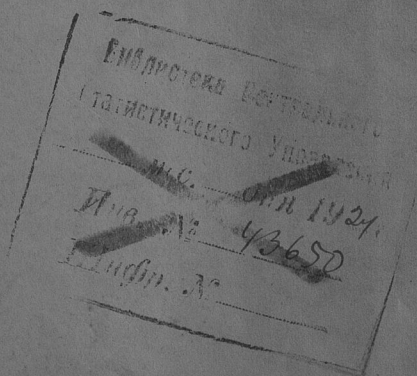 Библиотека Центрального
Статистического Управления
М.С. 192
Инв. № 43650
Шифр. №